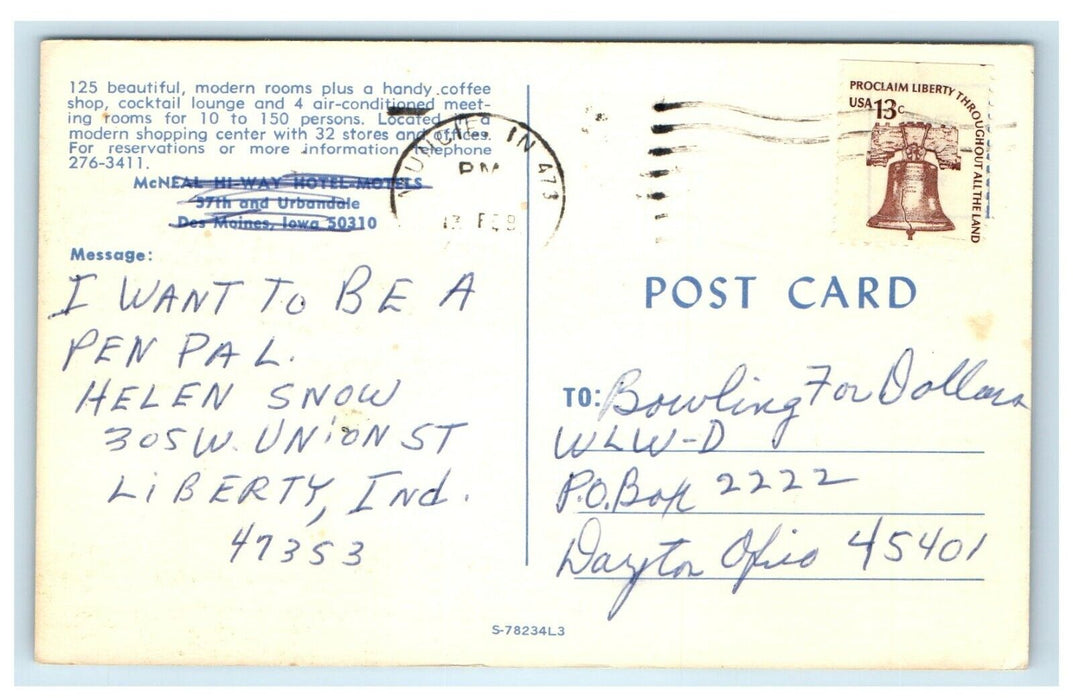 125 beautiful, modern rooms plus a handy coffee
shop, cocktail lounge and 4 air-conditioned meet-
ing rooms for 10 to 150 persons. Located in a
modern shopping center with 32 stores and offices.
For reservations or more information telephone
276-3411.
McNEAL HI-WAY HOTEL-MOTELS
57th and Urbandale
Des Moines, Iowa 50310
Message:
I WANT TO BE A
PEN PAL.
HELEN SNOW
305 W. UNION ST
LIBERTY, Ind.
47353
MUNCIE, IN 473
PM
13 FEB
PROCLAIM LIBERTY THROUGHOUT ALL THE LAND
USA 13c
POST CARD
TO: Bowling For Dollars
WLW-D
P.O. Box 2222
Dayton Ohio 45401
S-78234L3